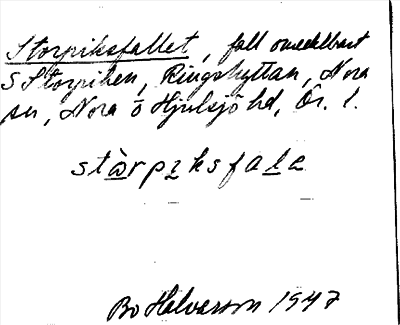 Storpiksfallet, fall omedelbart
S Storpiken, Ringshyttan, Nora
sn, Nora o Hjulsjö hd, Ör. l.
stὰrpıksfalε
Bo Halvarson 1947